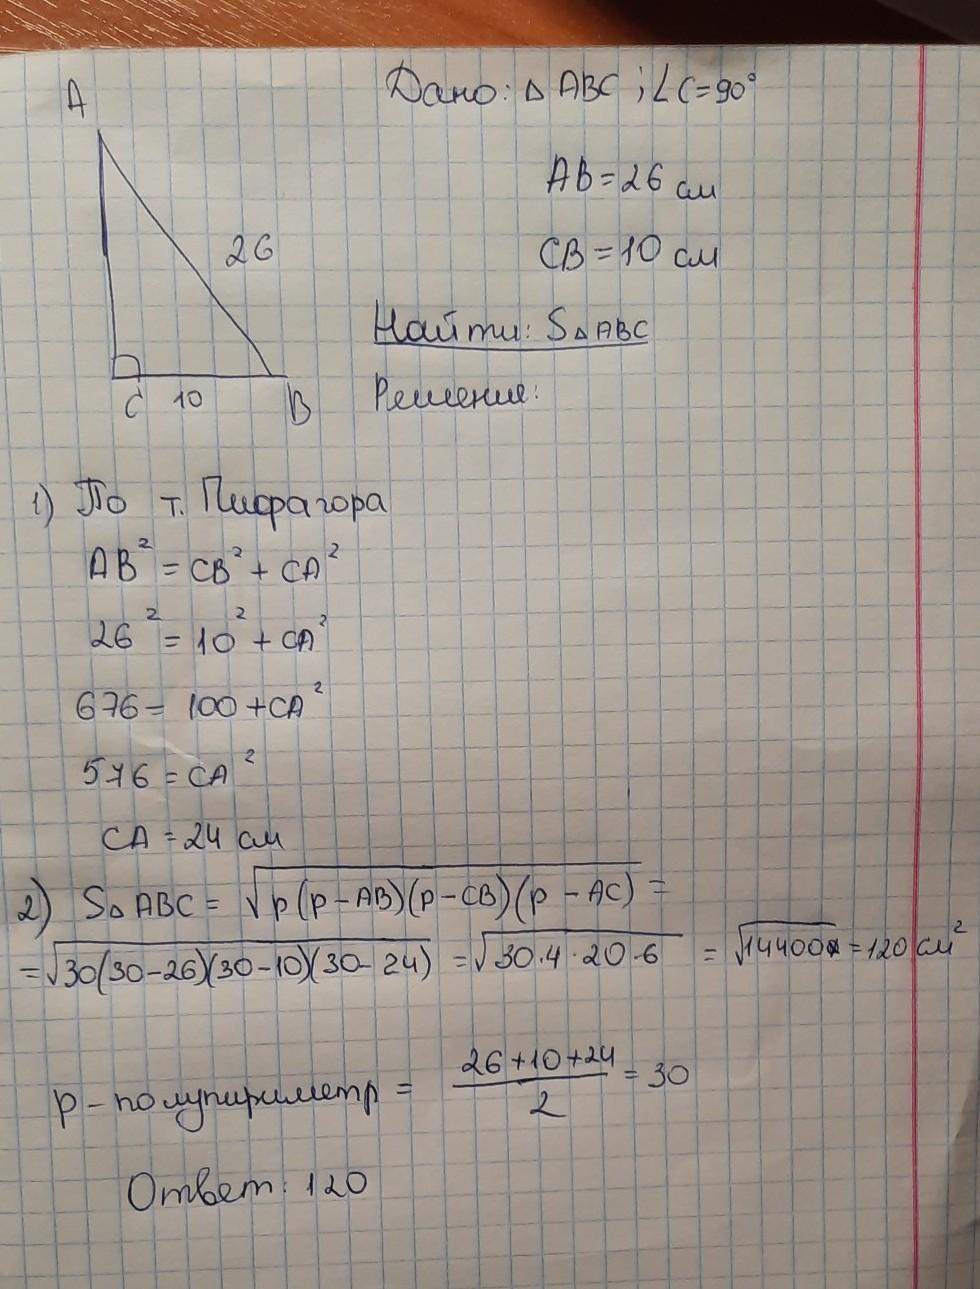 A
Дано: △ ABC ; ∠C=90°
AB=26 см
26
CB=10 см
Найти: S△ABC
Решение:
C 10 B
1) По т. Пифрагора
AB² = CB² + CA²
26² = 10² + CA²
676 = 100 + CA²
576 = CA²
CA = 24 см
2) S△ABC = √p(p-AB)(p-CB)(p-AC) =
= √30(30-26)(30-10)(30-24) = √30·4·20·6 = √14400 = 120 см²
p - полупириметр = (26+10+24)/2 = 30
Ответ: 120